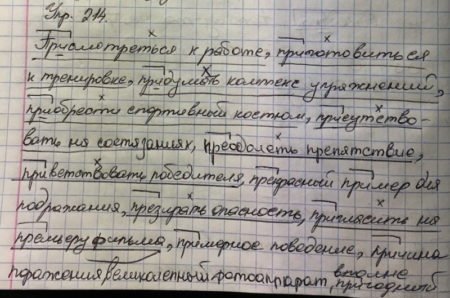 Упр. 214.
Присмотреться к работе, приготовиться
к тренировке, придумать комплекс упражнений,
приобрести спортивный костюм, присутство-
вать на состязаниях, преодолеть препятствие,
приветствовать победителя, прекрасный пример для
подражания, презирать опасность, пригласить на
премьеру фильма, примерное поведение, причина
поражения, великолепный фотоаппарат, вполне
пригодный